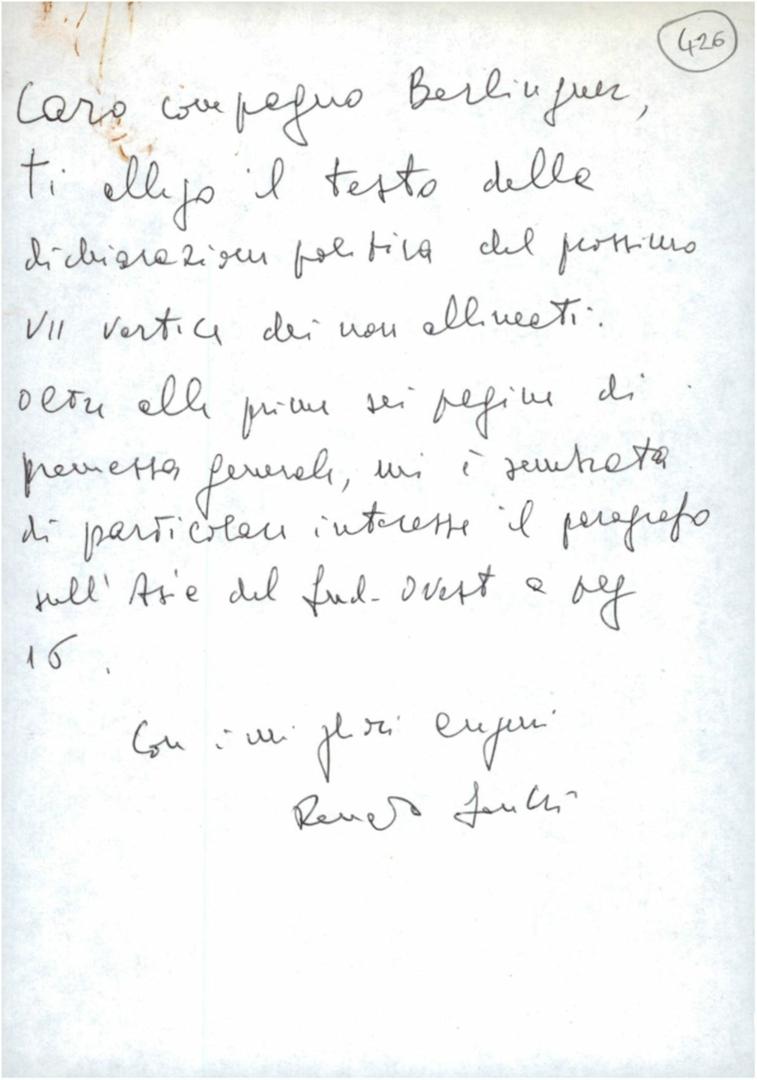 426
Caro compagno Berlinguer,
ti allego il testo della
dichiarazione politica del prossimo
VII vertice dei non allineati.
Oltre alle prime sei pagine di
premessa generale, mi è sembrata
di particolare interesse il paragrafo
sull'Asia del Sud-Ovest a pag
16.
Con i migliori auguri
Renato